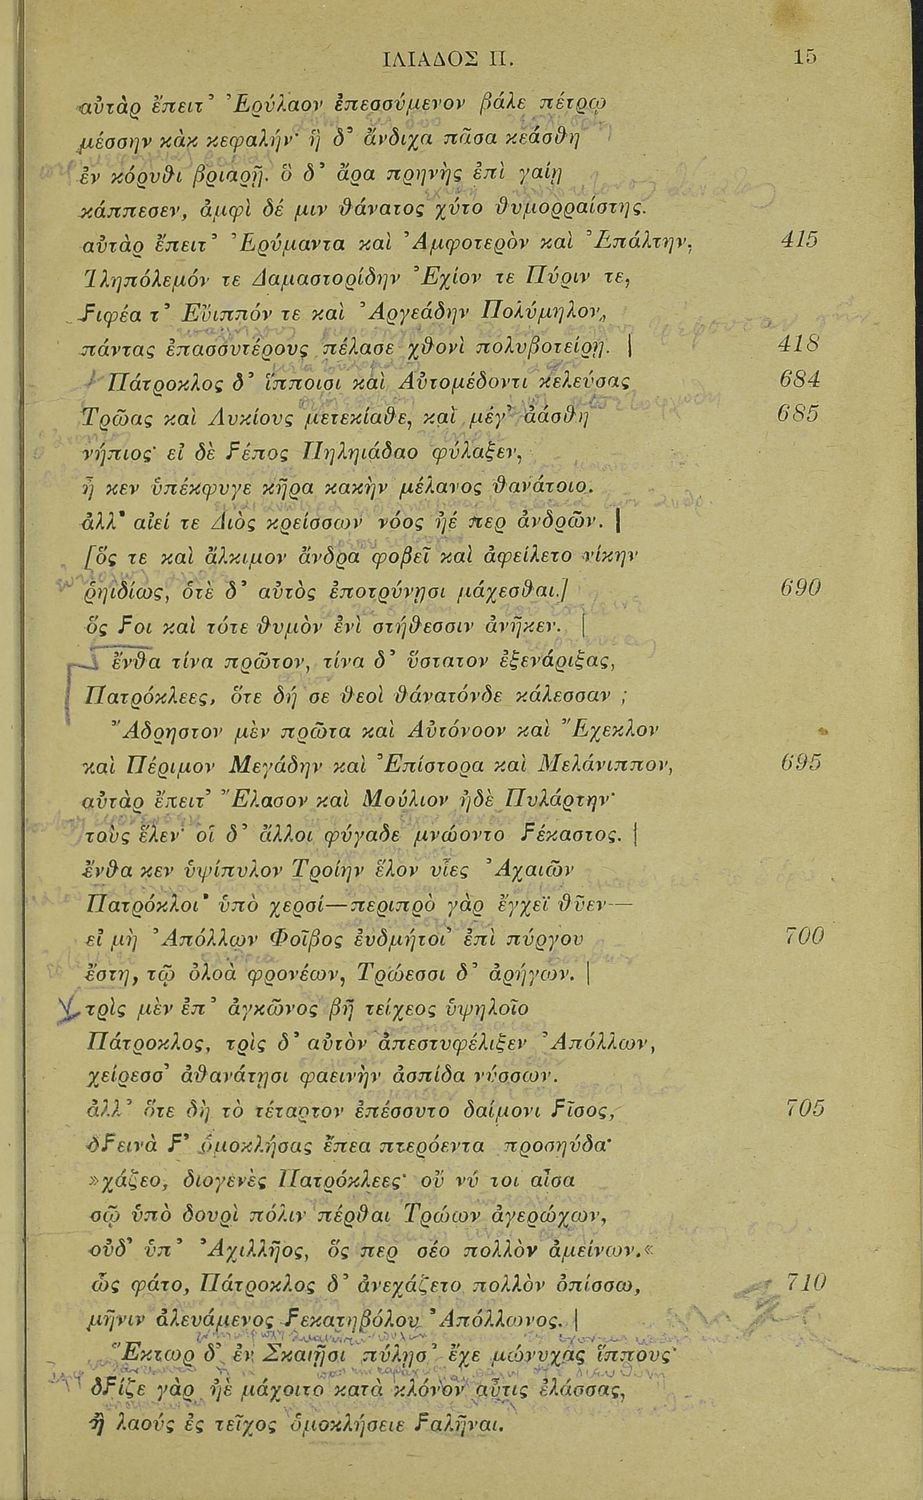 ΙΛΙΑΔΟΣ Π. 15
αὐτὰρ ἔπειτ᾽ Ἐρύλαον ἐπεσσύμενον βάλε πέτρῳ
μέσσην κὰκ κεφαλήν· ἣ δ᾽ ἄνδιχα πᾶσα κεάσθη
ἐν κόρυθι βριαρῇ. ὃ δ᾽ ἄρα πρηνὴς ἐπὶ γαίῃ
κάππεσεν, ἀμφὶ δέ μιν θάνατος χύτο θυμορραϊστης.
αὐτὰρ ἔπειτ᾽ Ἐρύμαντα καὶ Ἀμφοτερὸν καὶ Ἐπάλτην, 415
Τληπόλεμόν τε Δαμαστορίδην Ἐχίον τε Πύριν τε,
Ϝιφέα τ᾽ Εὔιππόν τε καὶ Ἀργεάδην Πολύμηλον,
πάντας ἐπασσυτέρους πέλασε χθονὶ πολυβοτείρῃ. | 418
Πάτροκλος δ᾽ ἵπποισι καὶ Αὐτομέδοντι κελεύσας 684
Τρῶας καὶ Λυκίους μετεκίαθε, καὶ μέγ᾽ ἀάσθη 685
νήπιος· εἰ δὲ Ϝέπος Πηληιάδαο φύλαξεν,
ἦ κεν ὑπέκφυγε κῆρα κακὴν μέλανος θανάτοιο.
ἀλλ᾽ αἰεί τε Διὸς κρείσσων νόος ἠέ περ ἀνδρῶν. |
[ὅς τε καὶ ἄλκιμον ἄνδρα φοβεῖ καὶ ἀφείλετο νίκην
ῥηιδίως, ὁτὲ δ᾽ αὐτὸς ἐποτρύνησι μάχεσθαι.] 690
ὅς Ϝοι καὶ τότε θυμὸν ἐνὶ στήθεσσιν ἀνῆκεν. |
ἔνθα τίνα πρῶτον, τίνα δ᾽ ὕστατον ἐξενάριξας,
Πατρόκλεες, ὅτε δή σε θεοὶ θάνατόνδε κάλεσσαν ;
Ἄδρηστον μὲν πρῶτα καὶ Αὐτόνοον καὶ Ἔχεκλον
καὶ Πέριμον Μεγάδην καὶ Ἐπίστορα καὶ Μελάνιππον, 695
αὐτὰρ ἔπειτ᾽ Ἔλασον καὶ Μούλιον ἠδὲ Πυλάρτην·
τοὺς ἕλεν· οἳ δ᾽ ἄλλοι φύγαδε μνώοντο Ϝέκαστος. |
ἔνθα κεν ὑψίπυλον Τροίην ἕλον υἷες Ἀχαιῶν
Πατρόκλοι᾽ ὑπὸ χερσί—περιπρὸ γὰρ ἔγχεϊ θῦεν—
εἰ μὴ Ἀπόλλων Φοῖβος ἐυδμήτοι᾽ ἐπὶ πύργου 700
ἔστη, τῷ ὀλοὰ φρονέων, Τρώεσσι δ᾽ ἀρήγων. |
τρὶς μὲν ἐπ᾽ ἀγκῶνος βῆ τείχεος ὑψηλοῖο
Πάτροκλος, τρὶς δ᾽ αὐτὸν ἀπεστυφέλιξεν Ἀπόλλων,
χείρεσσ᾽ ἀθανάτησι φαεινὴν ἀσπίδα νύσσων.
ἀλλ᾽ ὅτε δὴ τὸ τέταρτον ἐπέσσυτο δαίμονι Ϝῖσος, 705
δϜεινὰ Ϝ᾽ ὁμοκλήσας ἔπεα πτερόεντα προσηύδα·
»χάζεο, διογενὲς Πατρόκλεες· οὔ νύ τοι αἶσα
σῷ ὑπὸ δουρὶ πόλιν πέρθαι Τρώων ἀγερώχων,
οὐδ᾽ ὑπ᾽ Ἀχιλλῆος, ὅς περ σέο πολλὸν ἀμείνων.«
ὣς φάτο, Πάτροκλος δ᾽ ἀνεχάζετο πολλὸν ὀπίσσω, 710
μῆνιν ἀλευάμενος Ϝεκατηβόλου Ἀπόλλωνος. |
Ἕκτωρ δ᾽ ἐν Σκαιῇσι πύλησ᾽ ἔχε μώνυχας ἵππους·
δϜίζε γὰρ ἠὲ μάχοιτο κατὰ κλόνον αὖτις ἐλάσσας,
ἦ λαοὺς ἐς τεῖχος ὁμοκλήσειε Ϝαλῆναι.